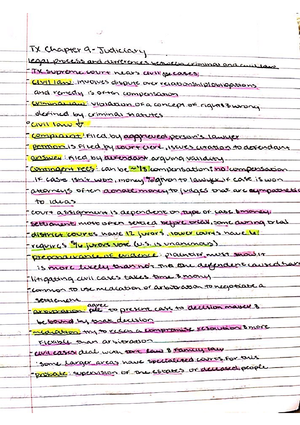 TX Chapter 9 - Judiciary
legal process and differences between criminal and civil law
- TX supreme court hears civil cases
- civil law: involves dispute over relationships/options
and remedy is often compensation
- criminal law: violation of a concept of right & wrong
defined by criminal statutes
- civil law ↓
- complaint: filed by aggrieved person's lawyer
- petition: is filed by court clerk, issues citation to defendant
- answer: filed by defendant arguing validity
- contingent fees: can be 1/3 compensation/no compensation
if case isn't won, money to lawyer if case is won
- attorneys often donate money to judges that are sympathetic
to ideas
- court assignment is dependent on type of case & money
- settlement more often settled before trial, some during trial
- district courts have 12 jurors, lower courts have 6
- requires jurors vote (U.S. is unanimous)
- preponderance of evidence: plaintiff must show it
is more likely than not that the defendent caused harm
- litigating civil cases takes time & money
- common to use mediation or arbitration to negotiate a
settlement
- arbitration: agree to present case to decision maker &
be bound by decision
- mediation: try to reach a resolution & more
flexible than arbitration
- civil cases deal with tort law & family law
- some larger areas have specialized courts for this
- probate: supervision of the estates of deceased people